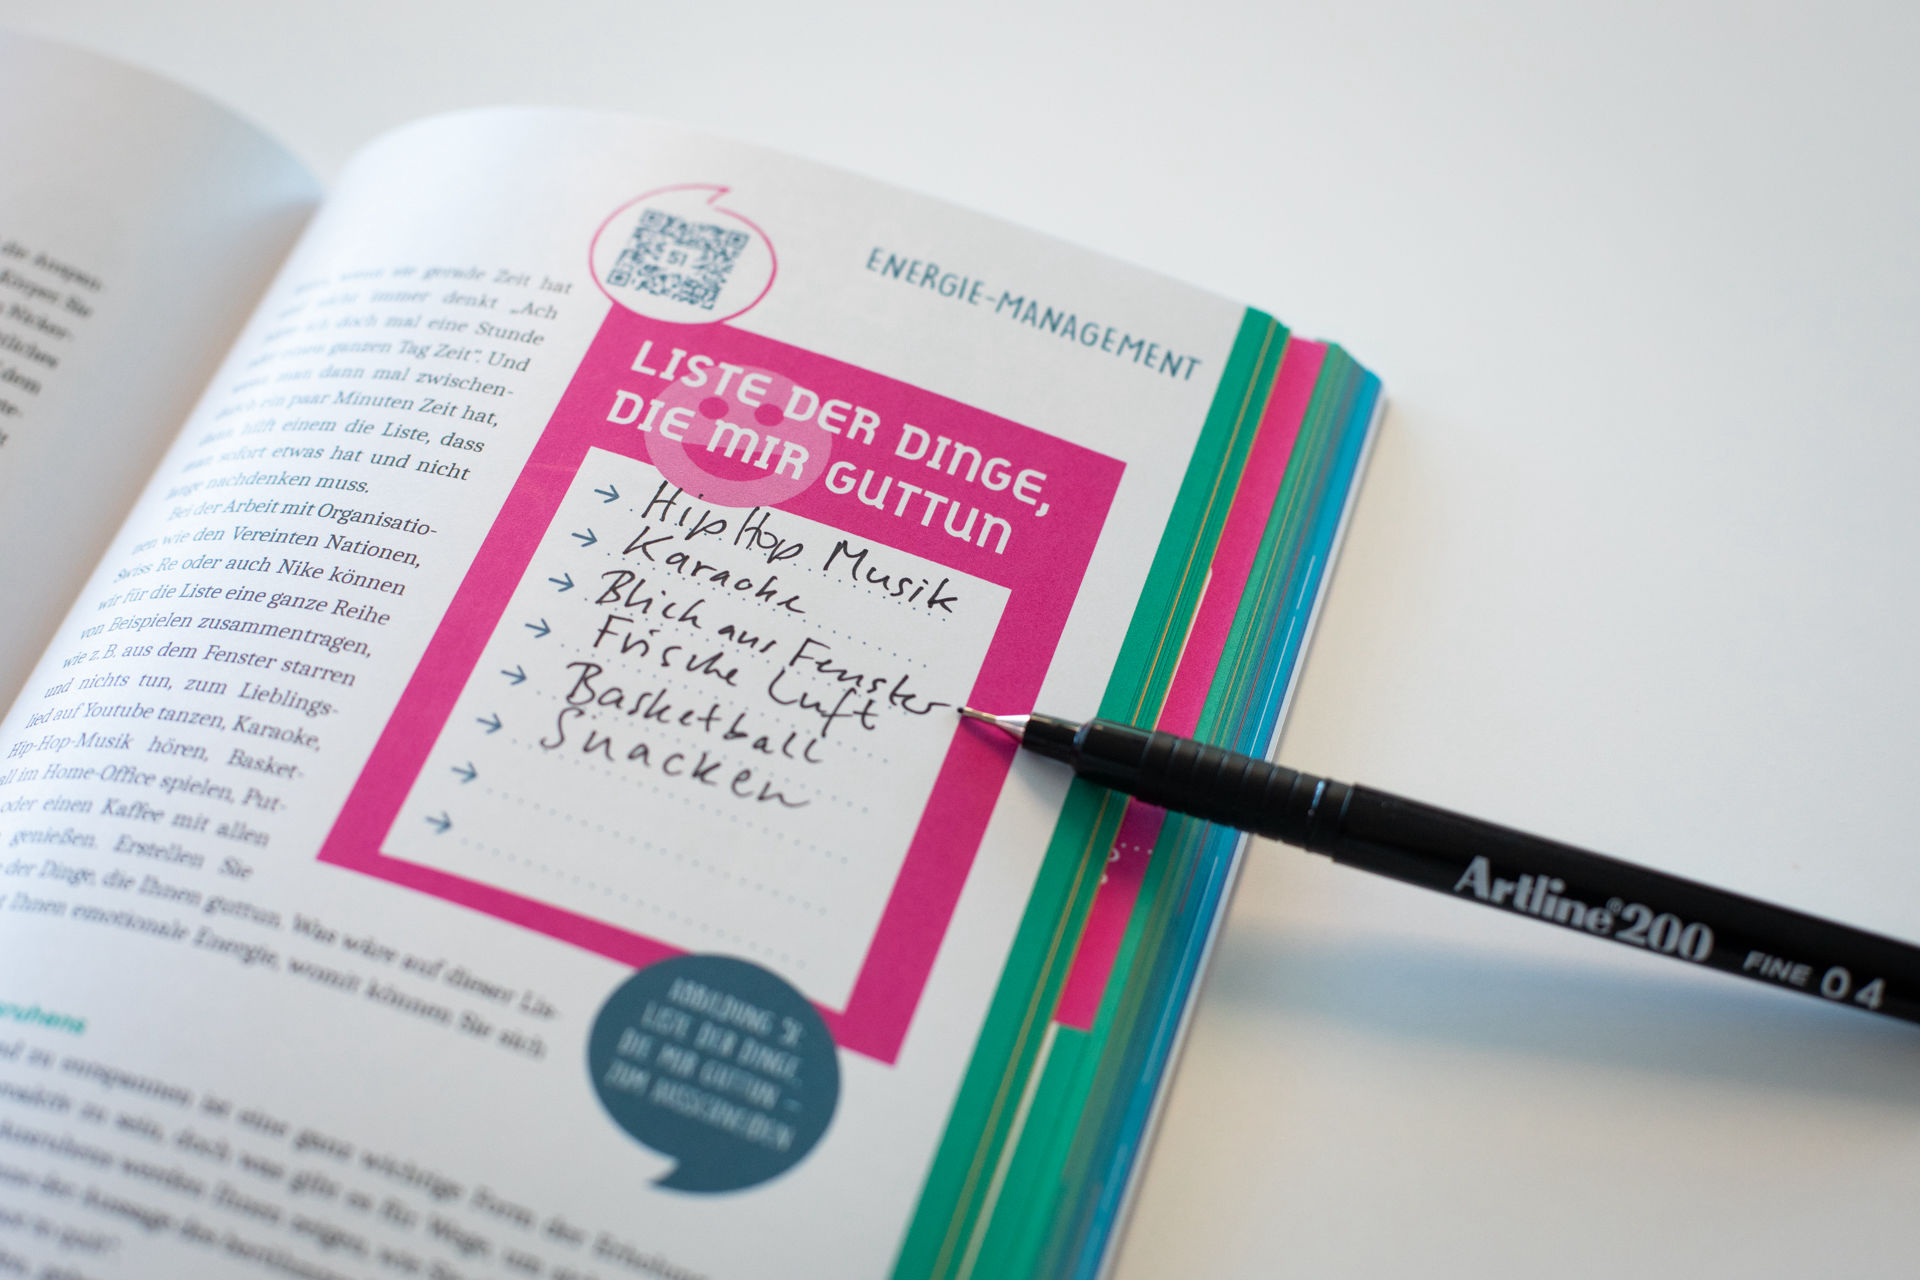 die Ausgen
Körpern Sie
51
ENERGIE-MANAGEMENT
wenn sie gerade Zeit hat
und nicht immer denkt „Ach
hätte ich doch mal eine Stunde
oder einen ganzen Tag Zeit“. Und
wenn man dann mal zwischen-
durch ein paar Minuten Zeit hat,
dann hilft einem die Liste, dass
man sofort etwas hat und nicht
lange nachdenken muss.
Bei der Arbeit mit Organisatio-
nen wie den Vereinten Nationen,
Swiss Re oder auch Nike können
wir für die Liste eine ganze Reihe
von Beispielen zusammentragen,
wie z. B. aus dem Fenster starren
und nichts tun, zum Lieblings-
lied auf Youtube tanzen, Karaoke,
Hip-Hop-Musik hören, Basket-
all im Home-Office spielen, Put-
oder einen Kaffee mit allen
genießen. Erstellen Sie
der Dinge, die Ihnen guttun. Was wäre auf dieser Lis-
Ihnen emotionale Energie, womit können Sie sich
LISTE DER DINGE,
DIE MIR GUTTUN
→ HipHop Musik
→ Karaoke
→ Blick aus Fenster
→ Frische Luft
→ Basketball
→ Snacken
→
→
ABBILDUNG 51:
LISTE DER DINGE,
DIE MIR GUTTUN –
ZUM AUSSCHNEIDEN
zu entspannen ist eine ganz wichtige Form der Erholung
zu sein, doch was gibt es für Wege, um
Ausruhens werden Ihnen zeigen, wie
Artline® 200 FINE 0.4